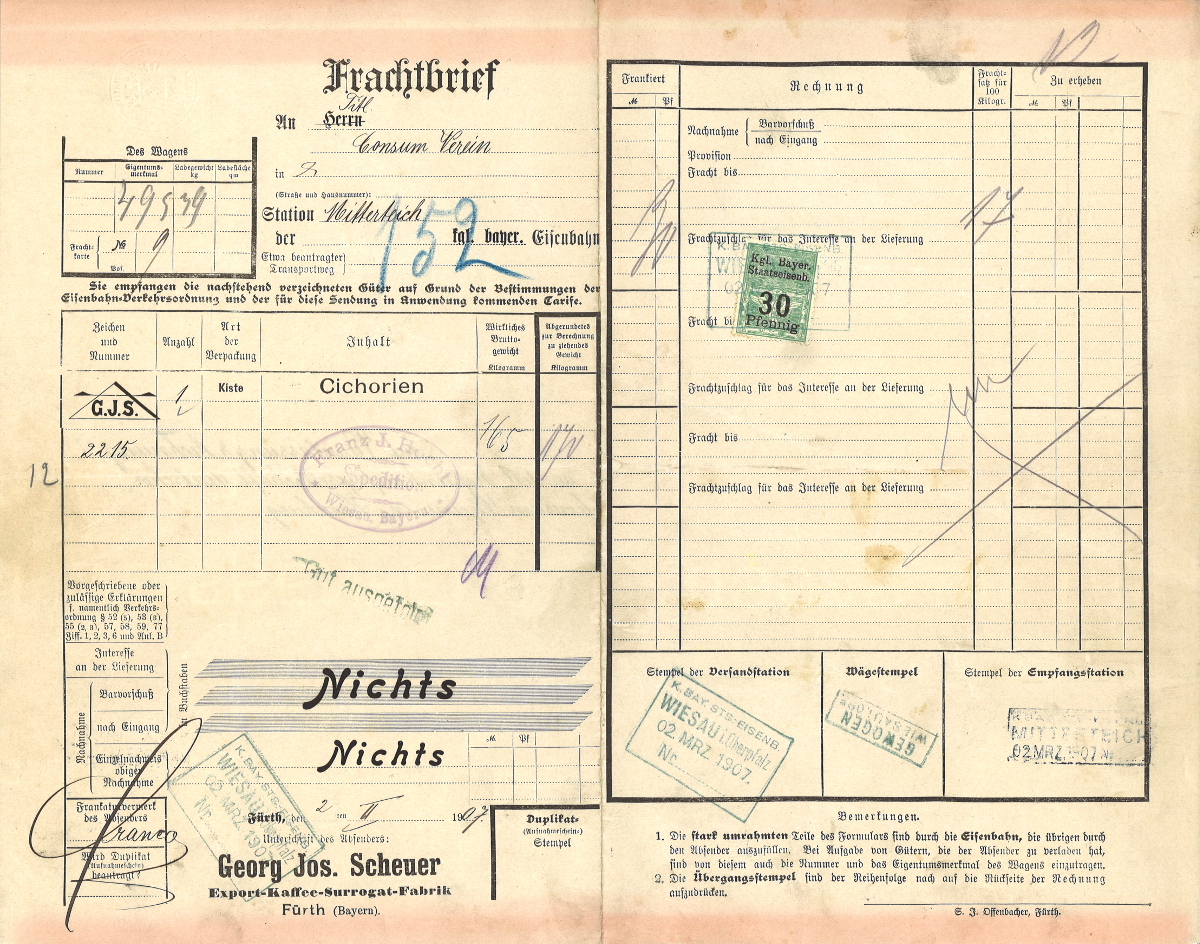 Frachtbrief
Titl.
An Herrn
Consum Verein
in
(Straße und Hausnummer):
Station Mitterteich
der kgl. bayer. Eisenbahn
Etwa beantragter
Transportweg
152
Des Wagens
Nummer
Eigentums-
merkmal
Ladegewicht
kg
Ladefläche
qm
49539
Fracht-
karte
No 9
Pos.
Sie empfangen die nachstehend verzeichneten Güter auf Grund der Bestimmungen der
Eisenbahn-Verkehrsordnung und der für diese Sendung in Anwendung kommenden Tarife.
Zeichen
und
Nummer
Anzahl
Art
der
Verpackung
Inhalt
Wirkliches
Brutto-
gewicht
Kilogramm
Abgerundetes
zur Berechnung
zu ziehendes
Gewicht
Kilogramm
G.J.S.
1/2
Kiste
Cichorien
165
170
2215.
12
Franz J. Hecht
Spedition
Wiesau, Bayern
Gut ausgeführt
Vorgeschriebene oder
zulässige Erklärungen
s. namentlich Verkehrs-
ordnung § 52 (5), 53 (8),
55 (2, 3), 57, 58, 59, 77
Ziff. 1, 2, 3, 6 und Anl. B
Interesse
an der Lieferung
Nachnahme
Barvorschuß
nach Eingang
Einzelnachweis
obiger
Nachnahme
in Buchstaben
Nichts
Nichts
M Pf
K. BAY. STS.-EISENB.
WIESAU i. Oberpfalz
02 MRZ. 1907
Nr.
Frankaturvermerk
des Absenders
franco
Wird Duplikat
(Aufnahmeschein)
beantragt?
Fürth, den 2 ten II 1907
Unterschrift des Absenders:
Georg Jos. Scheuer
Export-Kaffee-Surrogat-Fabrik
Fürth (Bayern).
Duplikat-
(Aufnahmeschein-)
Stempel
Frankiert
M Pf
Rechnung
Fracht-
satz für
100
Kilogr.
Zu erheben
M Pf
Nachnahme
Barvorschuß
nach Eingang
Provision
Fracht bis
30
17
Frachtzuschlag für das Interesse an der Lieferung
Kgl. Bayer.
Staatseisenb.
30
Pfennig
Fracht bis
Frachtzuschlag für das Interesse an der Lieferung
Fracht bis
Frachtzuschlag für das Interesse an der Lieferung
Stempel der Versandstation
Wägestempel
Stempel der Empfangstation
K. BAY. STS.-EISENB.
WIESAU i. Oberpfalz
02 MRZ. 1907.
Nr.
WIESAU i. Ob.
GEWOGEN
MITTERTEICH
02 MRZ. 1907
Bemerkungen.
1. Die stark umrahmten Teile des Formulars sind durch die Eisenbahn, die übrigen durch
den Absender auszufüllen. Bei Aufgabe von Gütern, die der Absender zu verladen hat,
sind von diesem auch die Nummer und das Eigentumsmerkmal des Wagens einzutragen.
2. Die Übergangsstempel sind der Reihenfolge nach auf die Rückseite der Rechnung
aufzudrücken.
S. J. Offenbacher, Fürth.